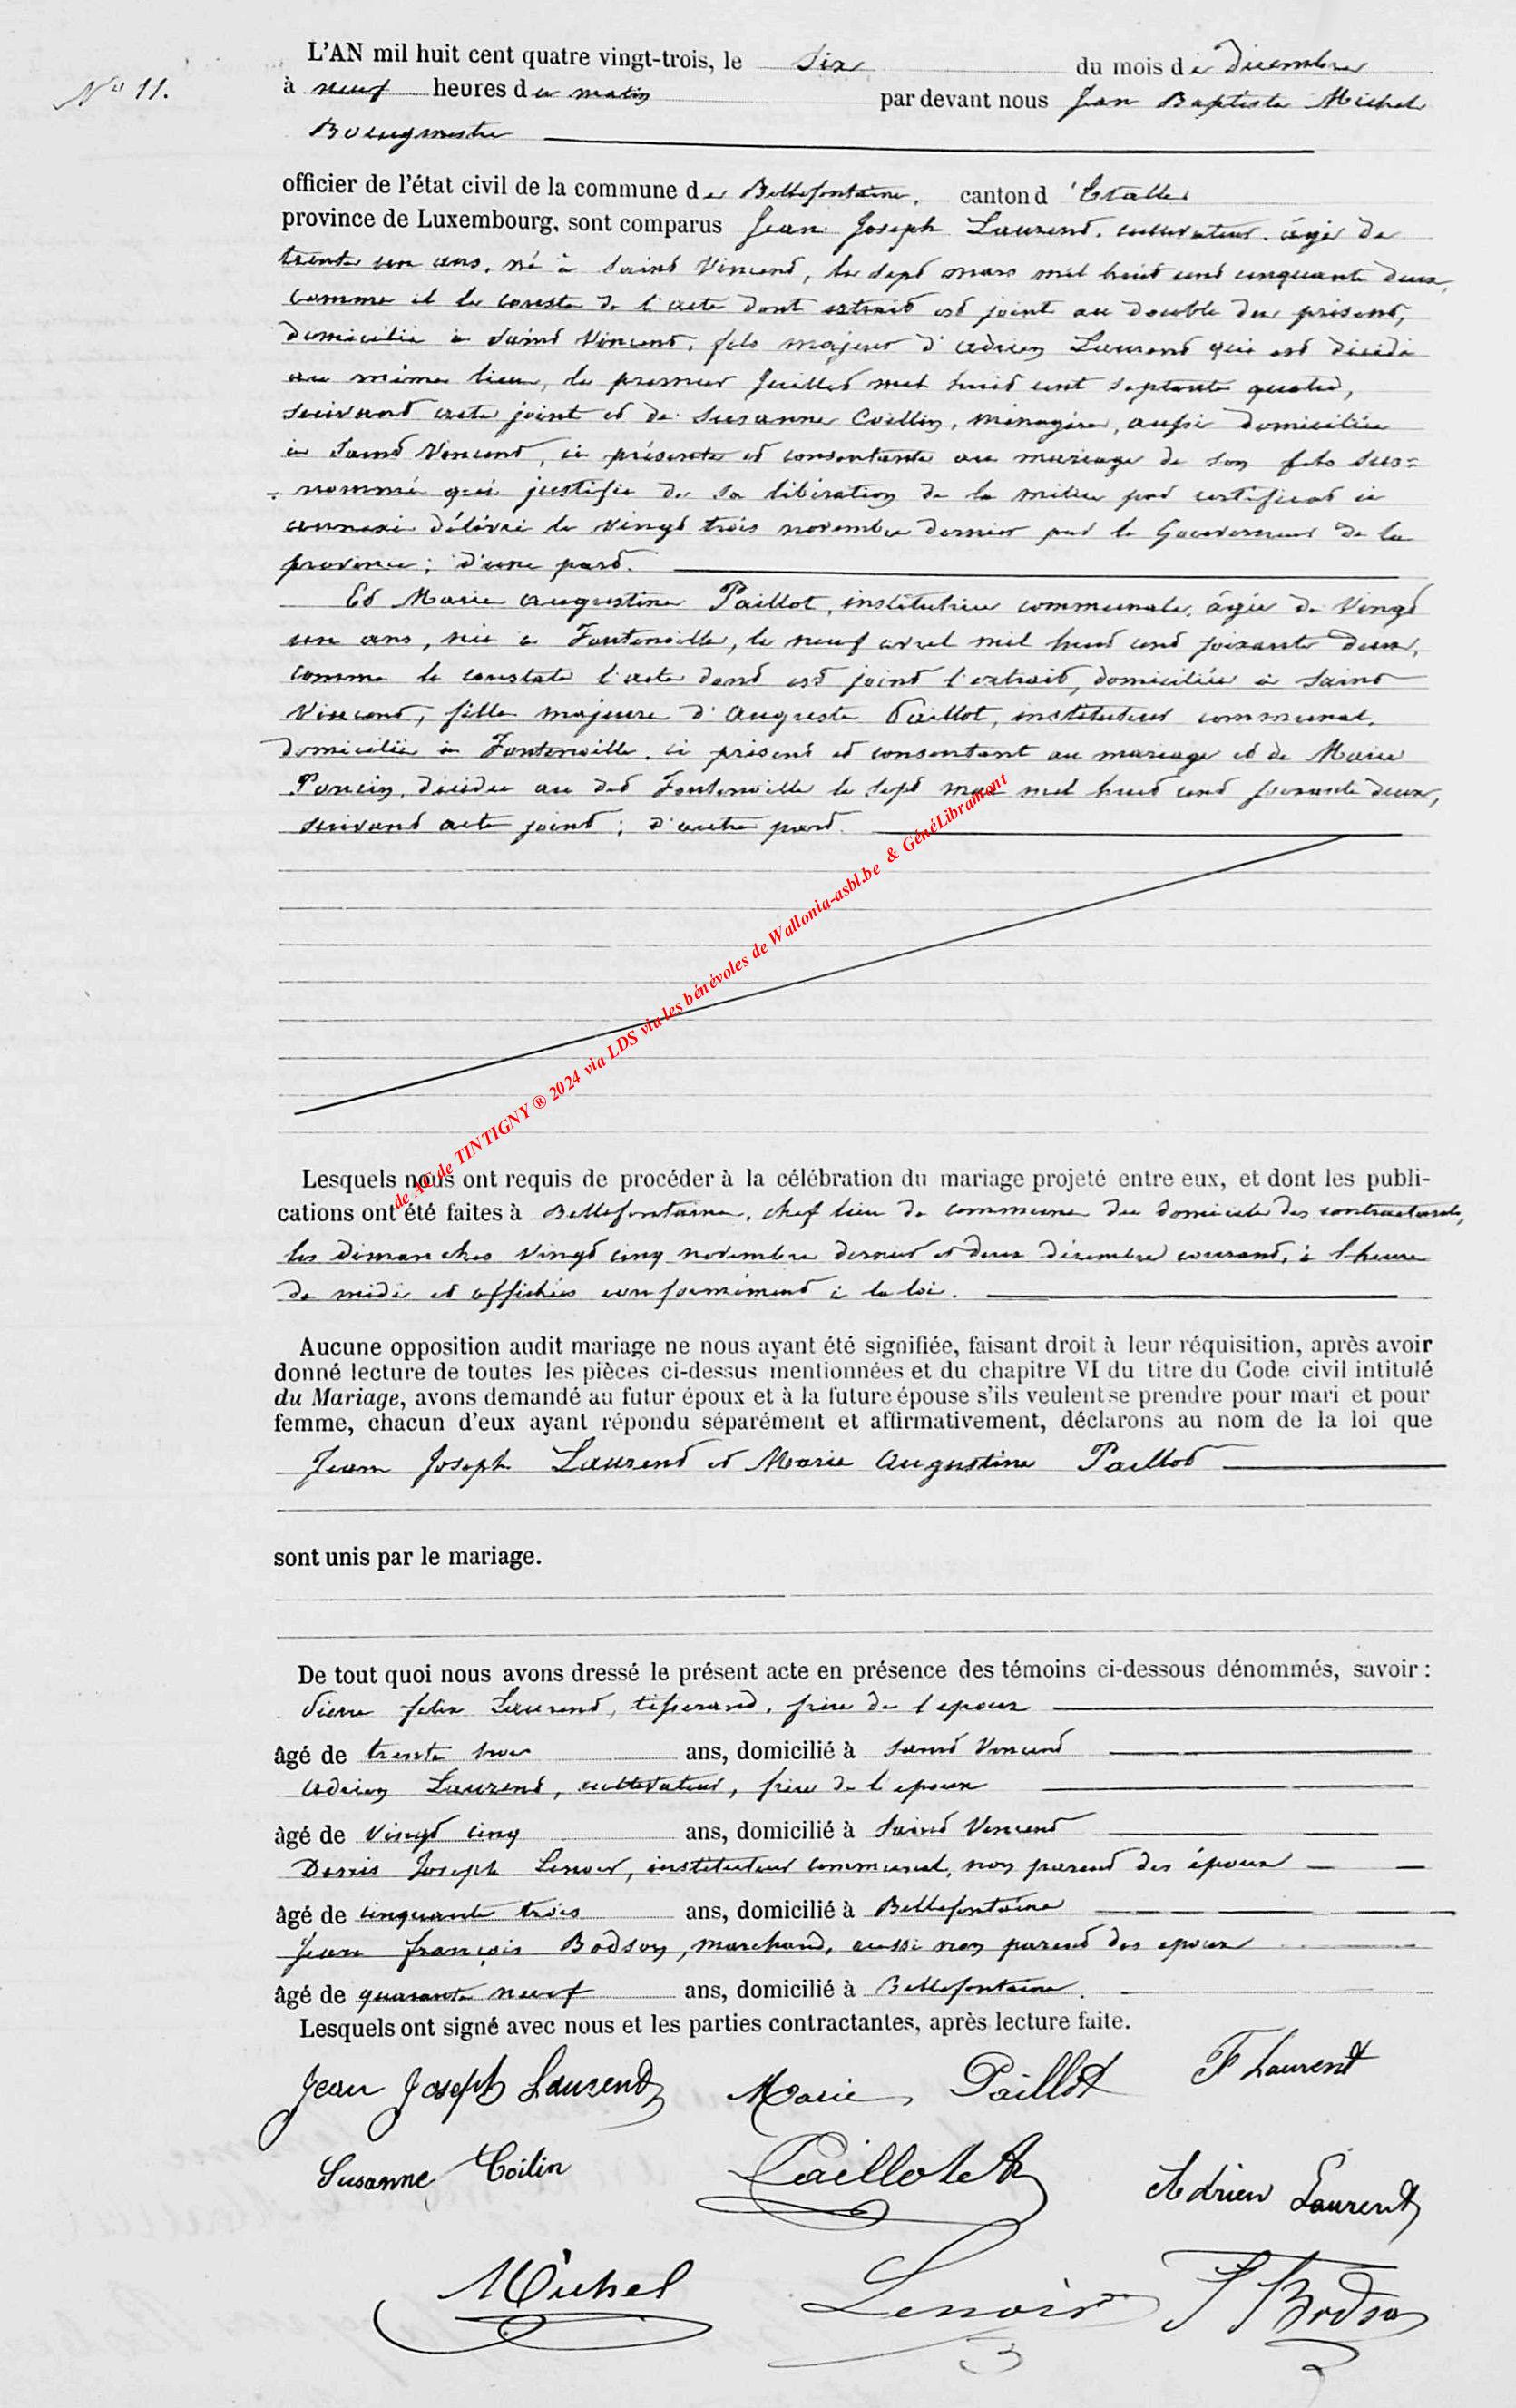 N° 11.
L'AN mil huit cent quatre vingt-trois, le six du mois de décembre
à neuf heures du matin par devant nous Jean Baptiste Michel
Bourgmestre
officier de l'état civil de la commune de Bellefontaine, canton d'Etalle
province de Luxembourg, sont comparus Jean Joseph Laurent, cultivateur, âgé de
trente un ans, né à Saint Vincent, le sept mars mil huit cent cinquante deux,
comme il le conste de l'acte dont extrait est joint au double du présent,
domicilié à Saint Vincent, fils majeur d'Adrien Laurent qui est décédé
au même lieu, le premier Juillet mil huit cent septante quatre,
suivant acte joint et de Susanne Coillin, ménagère, aussi domiciliée
à Saint Vincent, ci présente et consentante au mariage de son fils sus=
=nommé qui justifie de sa libération de la milice par certificat ci
annexé délivré le vingt trois novembre dernier par le Gouverneur de la
province; d'une part.
Et Marie Augustine Paillot, institutrice communale, âgée de vingt
un ans, née à Fontenoille, le neuf avril mil huit cent soixante deux,
comme le constate l'acte dont est joint l'extrait, domiciliée à Saint
Vincent, fille majeure d'Auguste Paillot, instituteur communal,
domicilié à Fontenoille, ci présent et consentant au mariage et de Marie
Poncin, décédée au dit Fontenoille le sept mai mil huit cent soixante deux,
suivant acte joint; d'autre part.
de AC de TINTIGNY ® 2024 via LDS via les bénévoles de Wallonia-asbl.be & GénéLibramont
Lesquels nous ont requis de procéder à la célébration du mariage projeté entre eux, et dont les publi-
cations ont été faites à Bellefontaine, chef lieu de commune du domicile des contractants,
les dimanches vingt cinq novembre dernier et deux décembre courant, à l'heure
de midi et affichées conformément à la loi.
Aucune opposition audit mariage ne nous ayant été signifiée, faisant droit à leur réquisition, après avoir
donné lecture de toutes les pièces ci-dessus mentionnées et du chapitre VI du titre du Code civil intitulé
du Mariage, avons demandé au futur époux et à la future épouse s'ils veulent se prendre pour mari et pour
femme, chacun d'eux ayant répondu séparément et affirmativement, déclarons au nom de la loi que
Jean Joseph Laurent et Marie Augustine Paillot
sont unis par le mariage.
De tout quoi nous avons dressé le présent acte en présence des témoins ci-dessous dénommés, savoir :
Pierre felix Laurent, tisserand, frère de l'epoux
âgé de trente ans, domicilié à Saint Vincent
Adrien Laurent, cultivateur, frère de l'epoux
âgé de vingt cinq ans, domicilié à Saint Vincent
Denis Joseph Lenoir, instituteur communal, non parent des époux
âgé de cinquante trois ans, domicilié à Bellefontaine
Jean françois Bodson, marchand, aussi non parent des epoux
âgé de quarante neuf ans, domicilié à Bellefontaine.
Lesquels ont signé avec nous et les parties contractantes, après lecture faite.
Jean Joseph Laurent Marie Paillot F Laurent
Susanne Coilin Paillot Adrien Laurent
Michel Lenoir Bodson